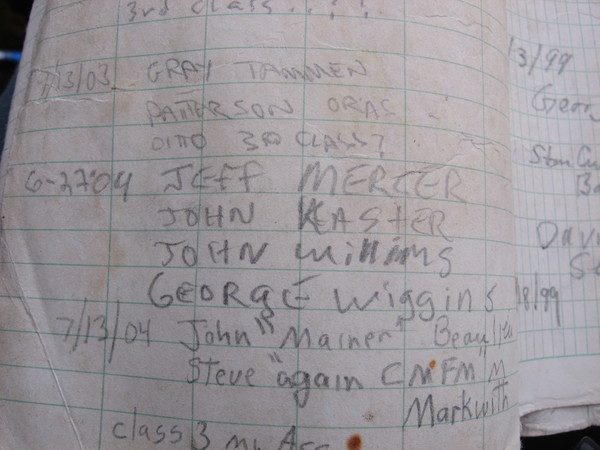 3rd class . . ? ?
7/13/03 GRAY TAMMEN
PATTERSON
DITTO 3RD CLASS?
6-27-04 JEFF MERCER
JOHN KASTER
JOHN Williams
GEORGE Wiggins
7/13/04 John "Mainer"
Steve "again CMFMM"
Markwith
class 3 my Ass
3/99
Geor
Ston Cu
Davi
18/99